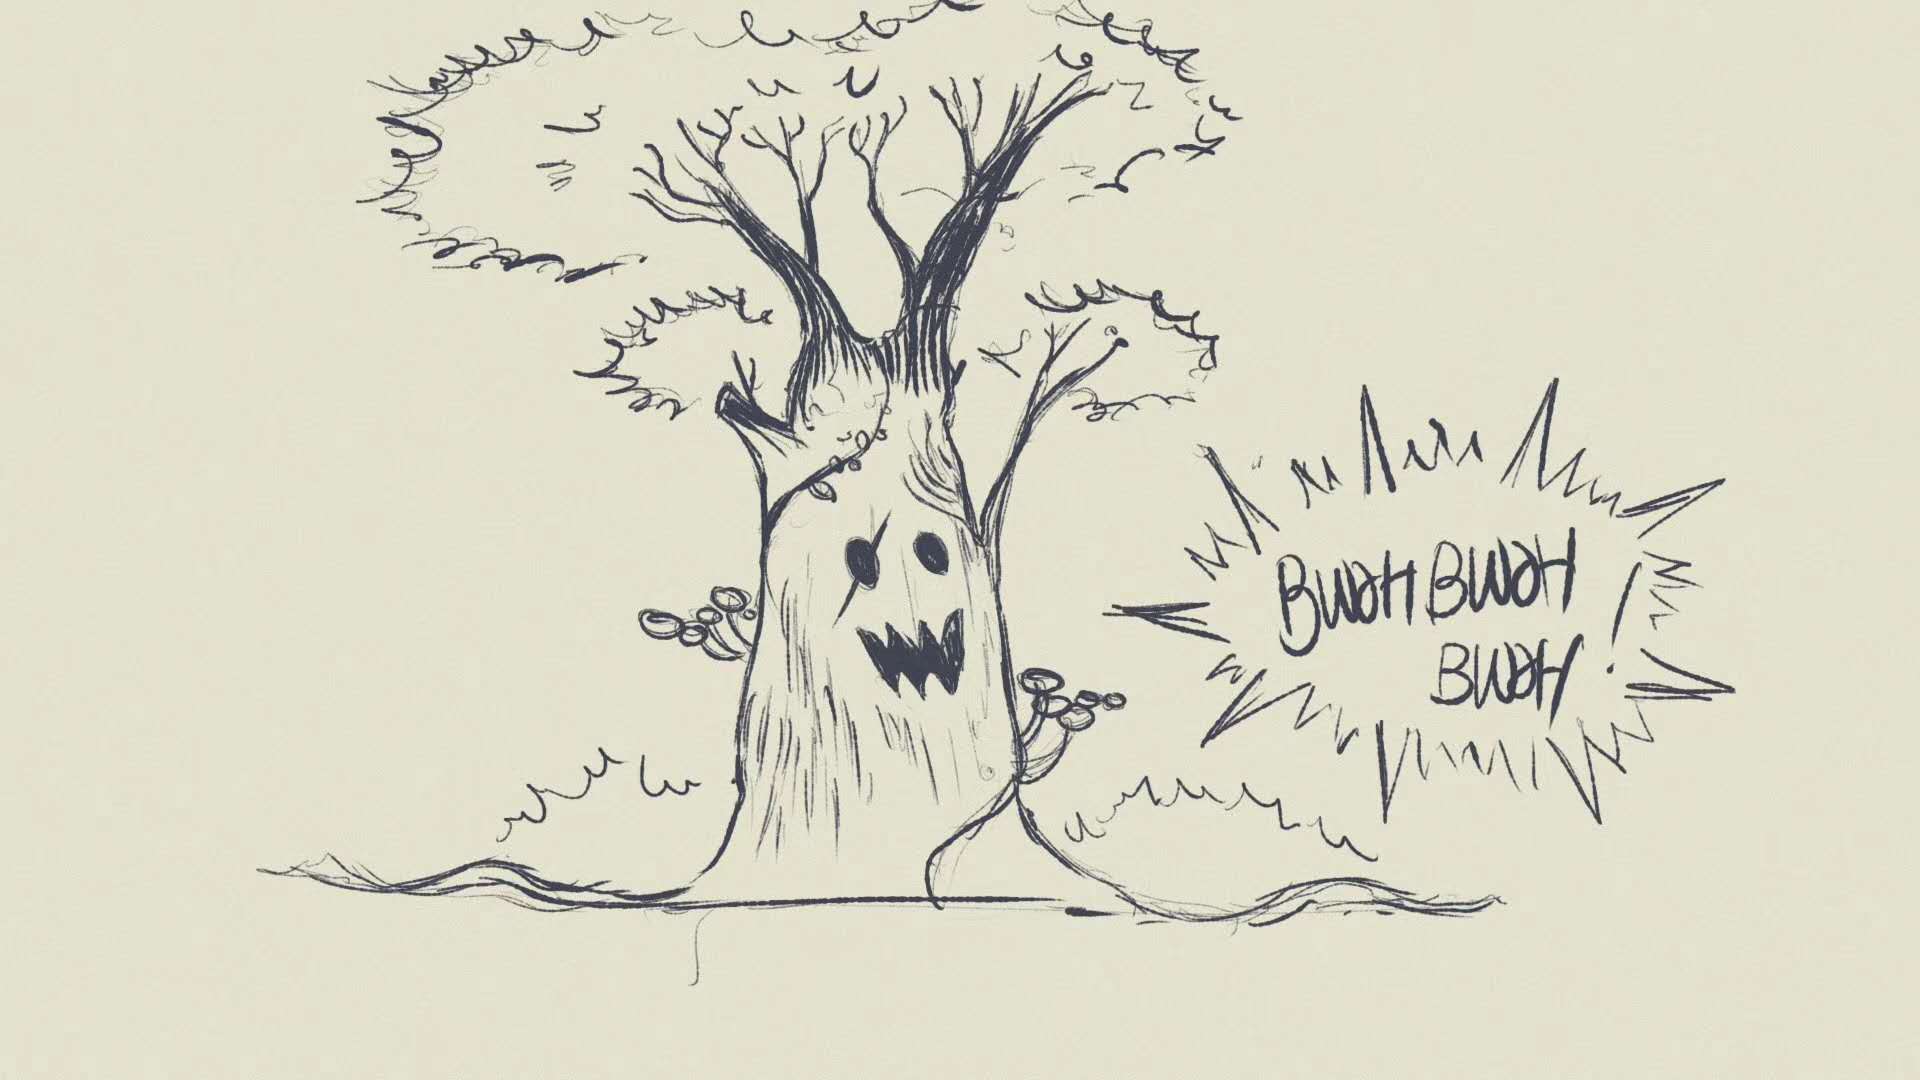 BWAH BWAH
BWAH!